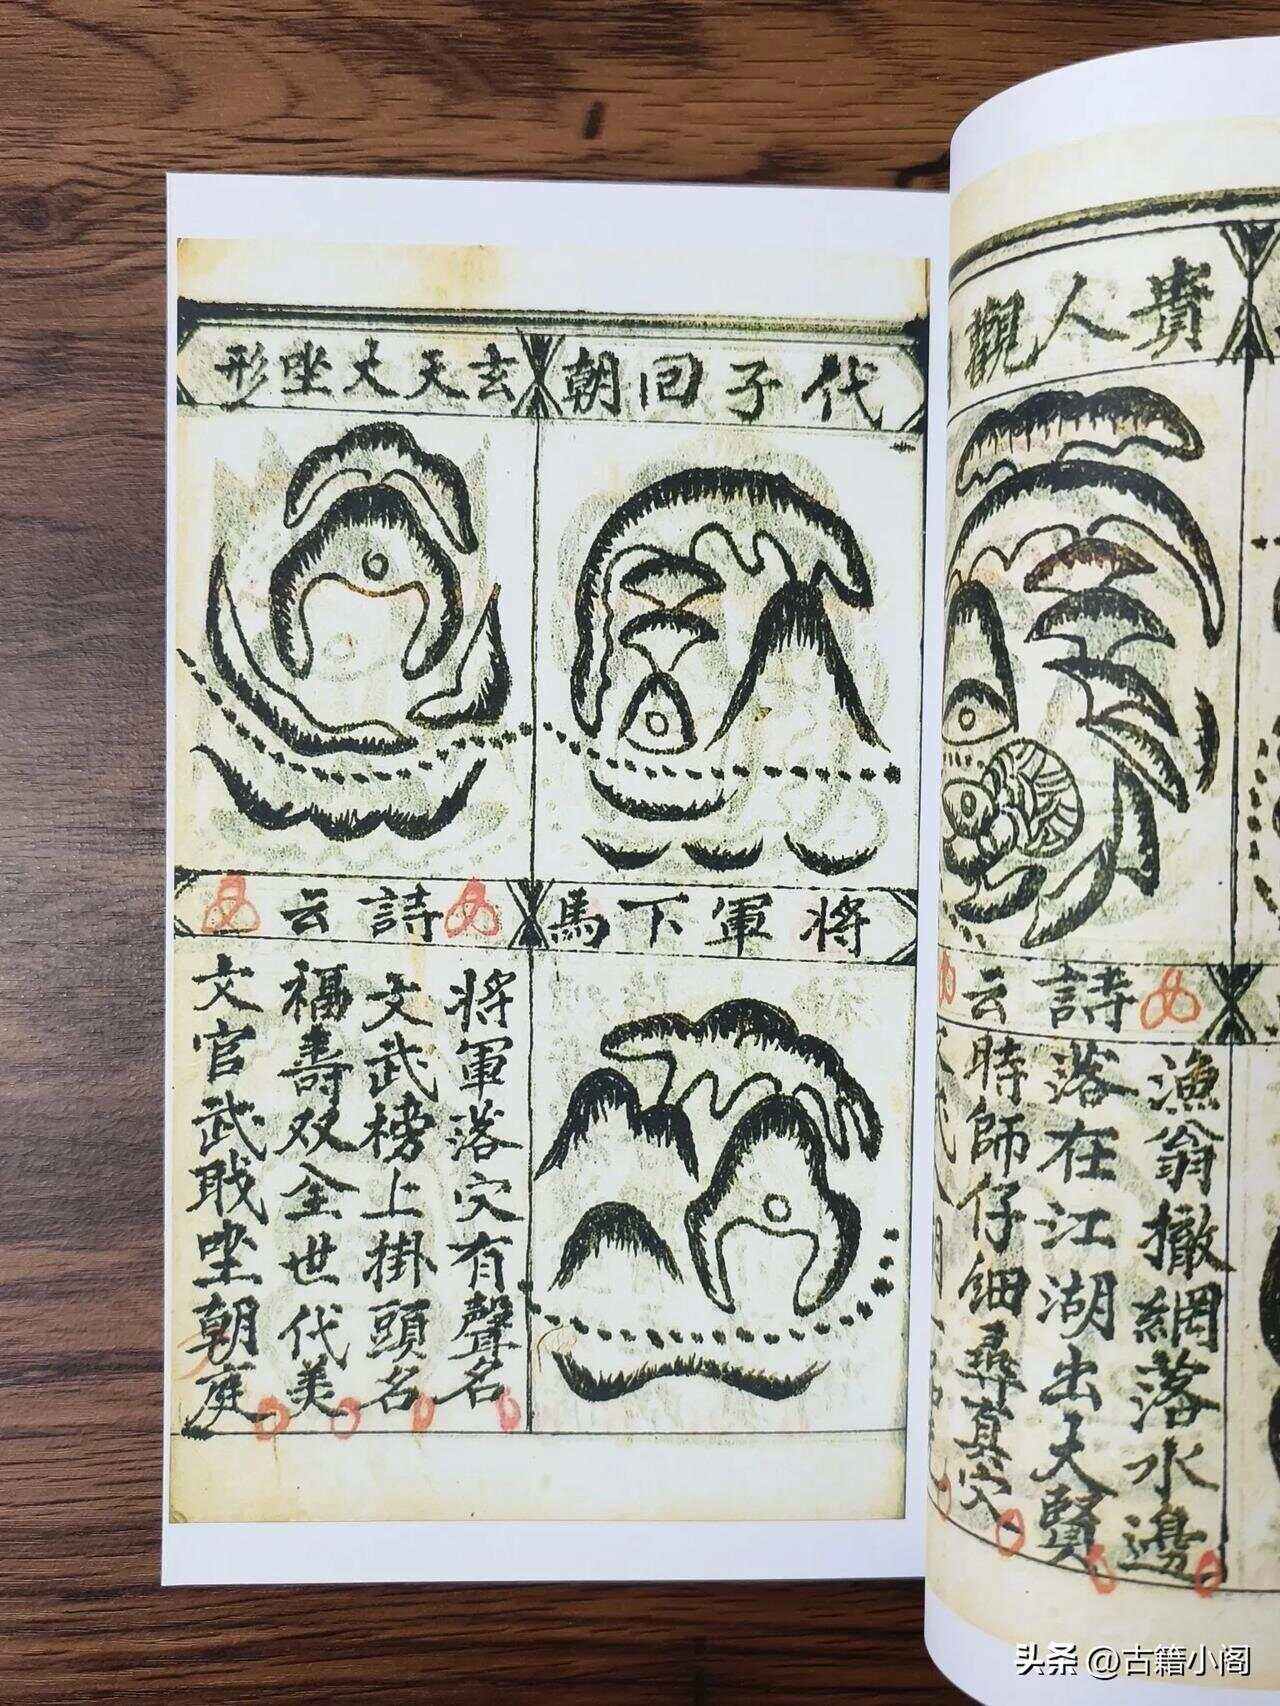 貴人觀
詩云
漁翁撒網落水邊
落在江湖出大賢
時師仔細尋真穴
代子回朝
玄天大唑形
将軍下馬
詩云
将軍落穴有聲名
文武榜上掛頭名
福壽双全世代美
文官武唑朝庭
头条 @古籍小阁